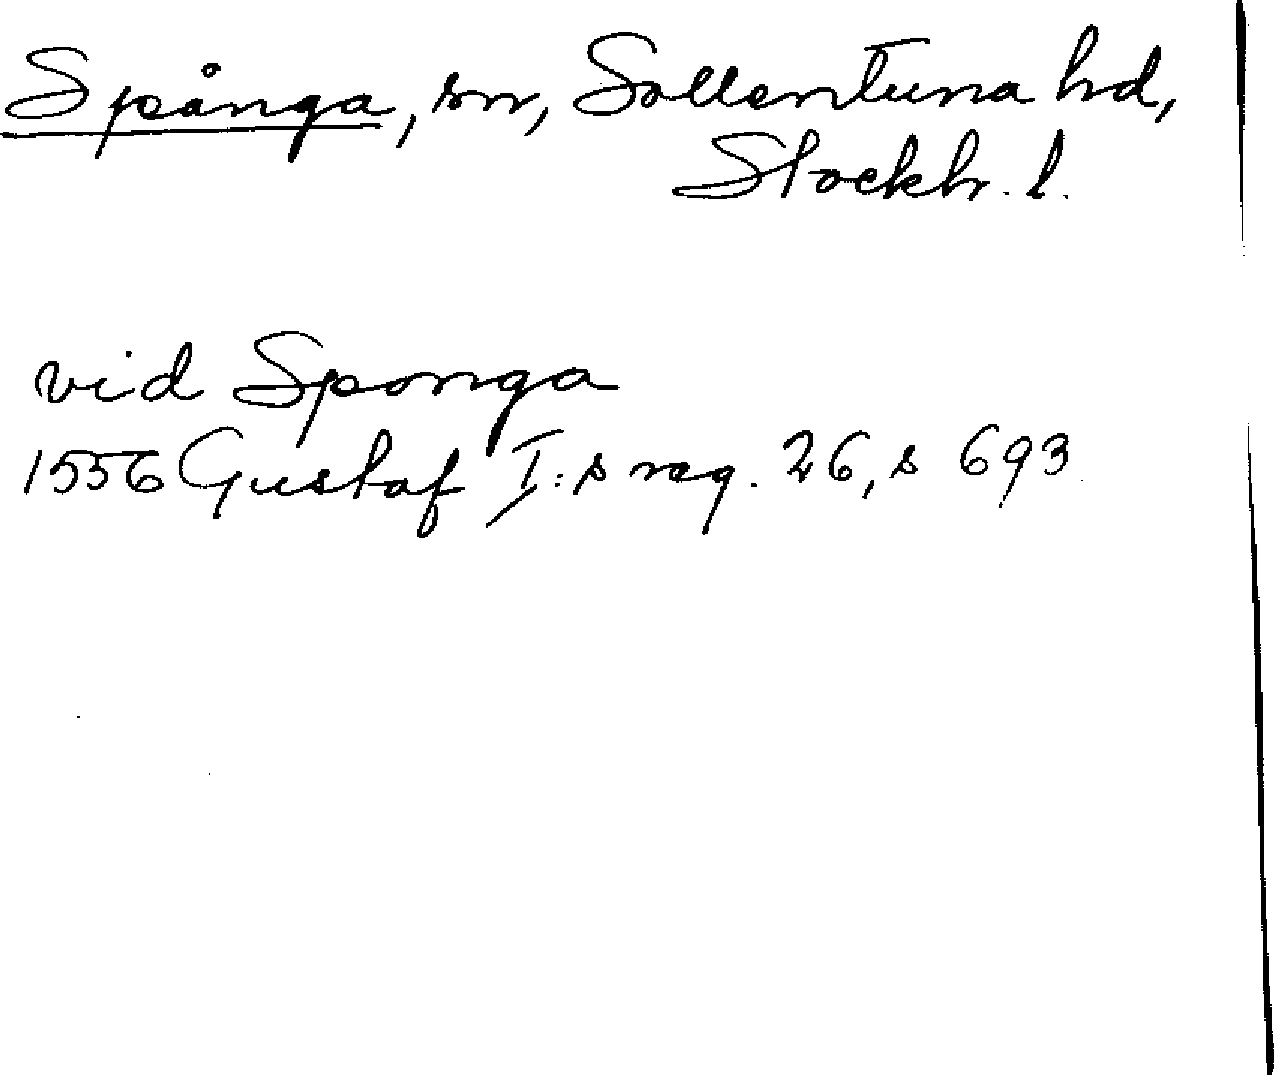 Spånga, sn, Sollentuna hd,
Stockh. l.
vid Sponga
1556 Gustaf I:s reg. 26, s 693